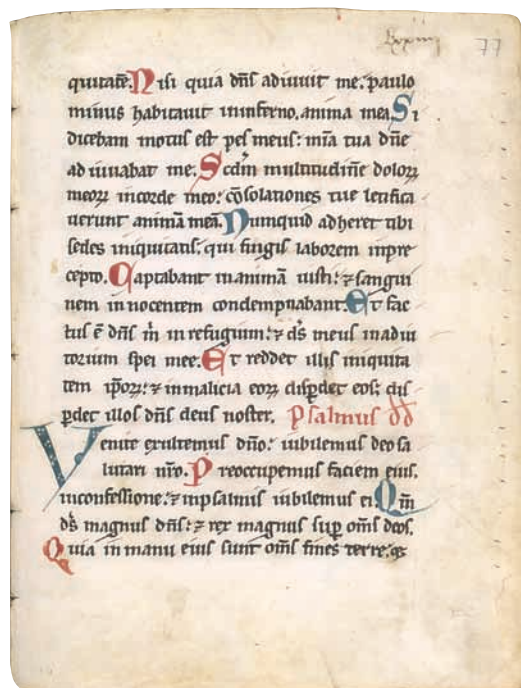 lxxiiij 77
quitatē. Nisi quia dn̄s adiuuit me: paulo
minus habitauit in inferno. anima mea Si
dicebam motus est pes meus: mīa tua dn̄e
adiuuabat me. Scdm̄ multitudinē dolorꝝ
meorꝝ in corde meo: cōsolationes tue letifica
uerunt animā meā. Numquid adheret tibi
sedes iniquitatis: qui fingis laborem in pre
cepto. Captabant in animā iusti: ⁊ sangui
nem innocentem condempnabant. Et fac
tus ē dn̄s m̄ in refugium: ⁊ ds̄ meus in adiu
torium spei mee. Et reddet illis iniquita
tem ip̄orꝝ: ⁊ in malicia eorꝝ disꝑdet eos: dis
ꝑdet illos dn̄s deus noster. Psalmus dd
Venite exultemus dn̄o: iubilemus deo sa
lutari nr̄o. Preoccupemus faciem eius.
in confessione: ⁊ in psalmis iubilemus ei. Qm̄
ds̄ magnus dn̄s: ⁊ rex magnus sup̄ om̄s deos.
Quia in manu eius sunt om̄s fines terre: ⁊